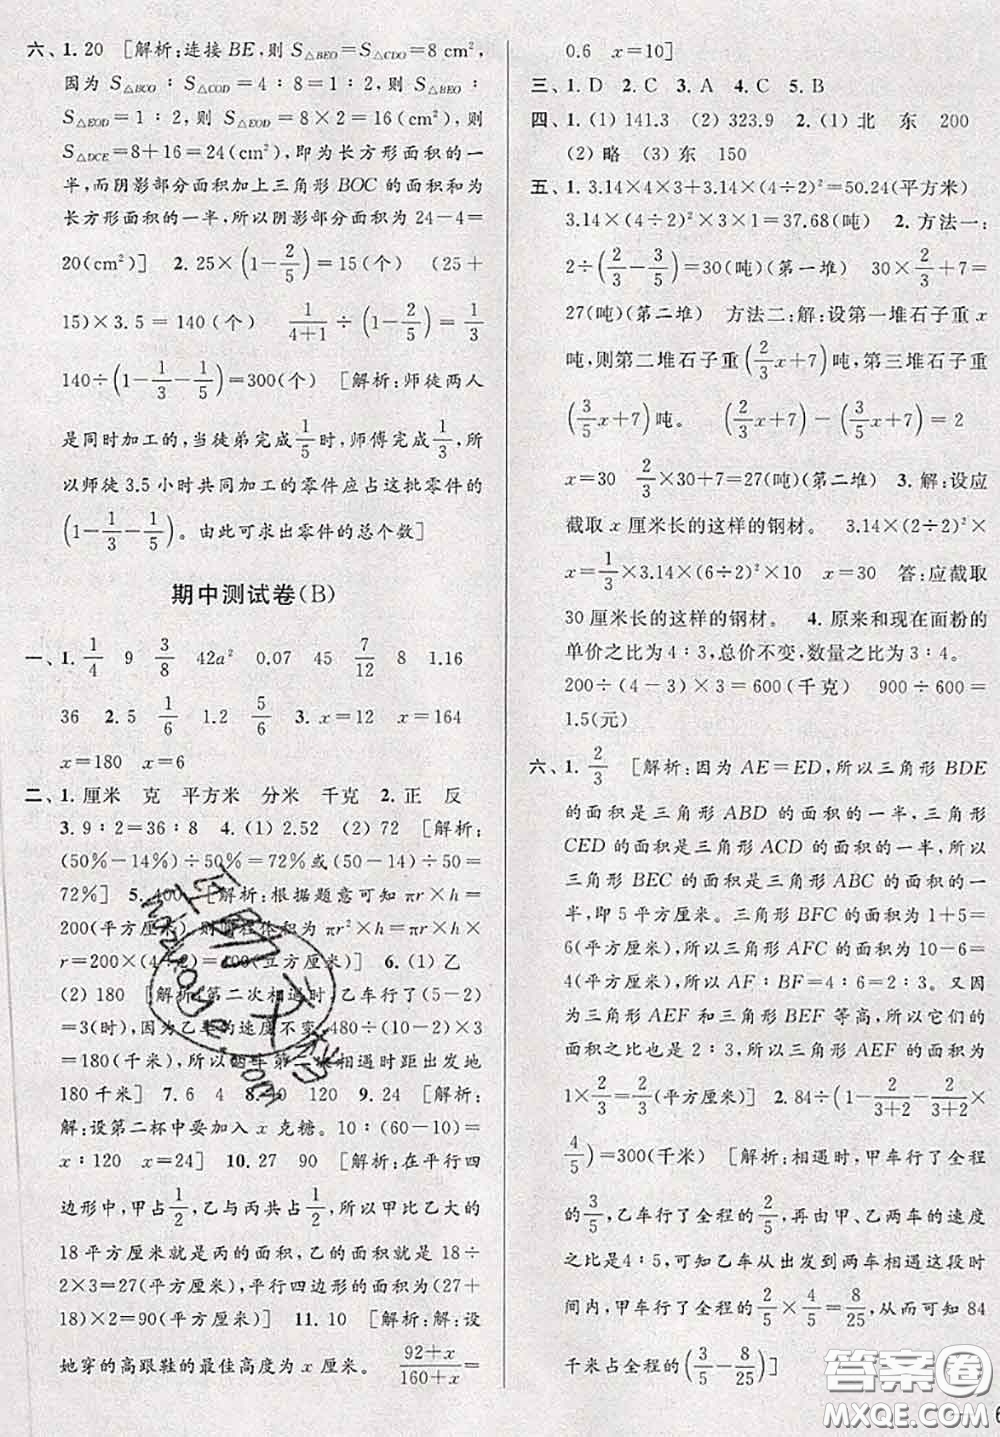 六、1. 20 [解析:连接 BE,则 S△BEO=S△CDO=8 cm²,
因为 S△BCO∶S△COD=4∶8=1∶2,则 S△BEO∶
S△EOD=1∶2,则 S△EOD=8×2=16(cm²),则
S△DCE=8+16=24(cm²),即为长方形面积的一
半,而阴影部分面积加上三角形 BOC 的面积和为
长方形面积的一半,所以阴影部分面积为 24-4=
20(cm²)] 2. 25×(1-2/5)=15(个) (25+
15)×3.5=140(个) 1/(4+1)÷(1-2/5)=1/3
140÷(1-1/3-1/5)=300(个) [解析:师徒两人
是同时加工的,当徒弟完成1/5时,师傅完成1/3,所
以师徒 3.5 小时共同加工的零件应占这批零件的
(1-1/3-1/5)。由此可求出零件的总个数]
期中测试卷(B)
一、1. 1/4 9 3/8 42a² 0.07 45 7/12 8 1.16
36 2. 5 1/6 1.2 5/6 3. x=12 x=164
x=180 x=6
二、1. 厘米 克 平方米 分米 千克 2. 正 反
3. 9∶2=36∶8 4. (1) 2.52 (2) 72 [解析:
(50%-14%)÷50%=72%或(50-14)÷50=
72%] 5. 400 [解析:根据题意可知 πr×h=
200(平方厘米),则圆柱体积为 πr²×h=πr×h×
r=200×(4÷2)=400(立方厘米)] 6. (1) 乙
(2) 180 [解析:第二次相遇时,乙车行了(5-2)
=3(时),因为乙车的速度不变,480÷(10-2)×3
=180(千米),所以两车第二次相遇时距出发地
180千米] 7. 6 4 8. 20 120 9. 24 [解析:
解:设第二杯中要加入 x 克糖。10∶(60-10)=
x∶120 x=24] 10. 27 90 [解析:在平行四
边形中,甲占1/2,乙与丙共占1/2,所以甲比乙大的
18平方厘米就是丙的面积,乙的面积是 18÷
2×3=27(平方厘米),平行四边形的面积为(27+
18)×2=90(平方厘米) 11. 10 [解析:解:设
她穿的高跟鞋的最佳高度为 x 厘米。 (92+x)/(160+x)=
0.6 x=10]
三、1. D 2. C 3. A 4. C 5. B
四、1. (1) 141.3 (2) 323.9 2. (1) 北 东 200
(2) 略 (3) 东 150
五、1. 3.14×4×3+3.14×(4÷2)²=50.24(平方米)
3.14×(4÷2)²×3×1=37.68(吨) 2. 方法一:
2÷(2/3-3/5)=30(吨)(第一堆) 30×2/3+7=
27(吨)(第二堆) 方法二:解:设第一堆石子重 x
吨,则第二堆石子重(2/3x+7)吨,第三堆石子重
(3/5x+7)吨。 (2/3x+7)-(3/5x+7)=2
x=30 2/3×30+7=27(吨)(第二堆) 3. 解:设应
截取 x 厘米长的这样的钢材。 3.14×(2÷2)²×
x=1/3×3.14×(6÷2)²×10 x=30 答:应截取
30厘米长的这样的钢材。 4. 原来和现在面粉的
单价之比为 4∶3,总价不变,数量之比为 3∶4。
200÷(4-3)×3=600(千克) 900÷600=
1.5(元)
六、1. 2/3 [解析:因为 AE=ED,所以三角形 BDE
的面积是三角形 ABD 的面积的一半,三角形
CED 的面积是三角形 ACD 的面积的一半,所以
三角形 BEC 的面积是三角形 ABC 的面积的一
半,即 5 平方厘米。三角形 BFC 的面积为 1+5=
6(平方厘米),所以三角形 AFC 的面积为 10-6=
4(平方厘米),所以 AF∶BF=4∶6=2∶3。又因为
三角形 AEF 和三角形 BEF 等高,所以它们的
面积之比也是 2∶3,所以三角形 AEF 的面积为
1×2/3=2/3(平方厘米)] 2. 84÷(1-2/(3+2)-2/(3+2)×
4/5)=300(千米) [解析:相遇时,甲车行了全程
的3/5,乙车行了全程的2/5,再由甲、乙两车的速度
之比是4∶5,可知乙车从出发到两车相遇这段时
间内,甲车行了全程的2/5×4/5=8/25,从而可知 84
千米占全程的(3/5-8/25)]
答案圈
MXQE.COM
6